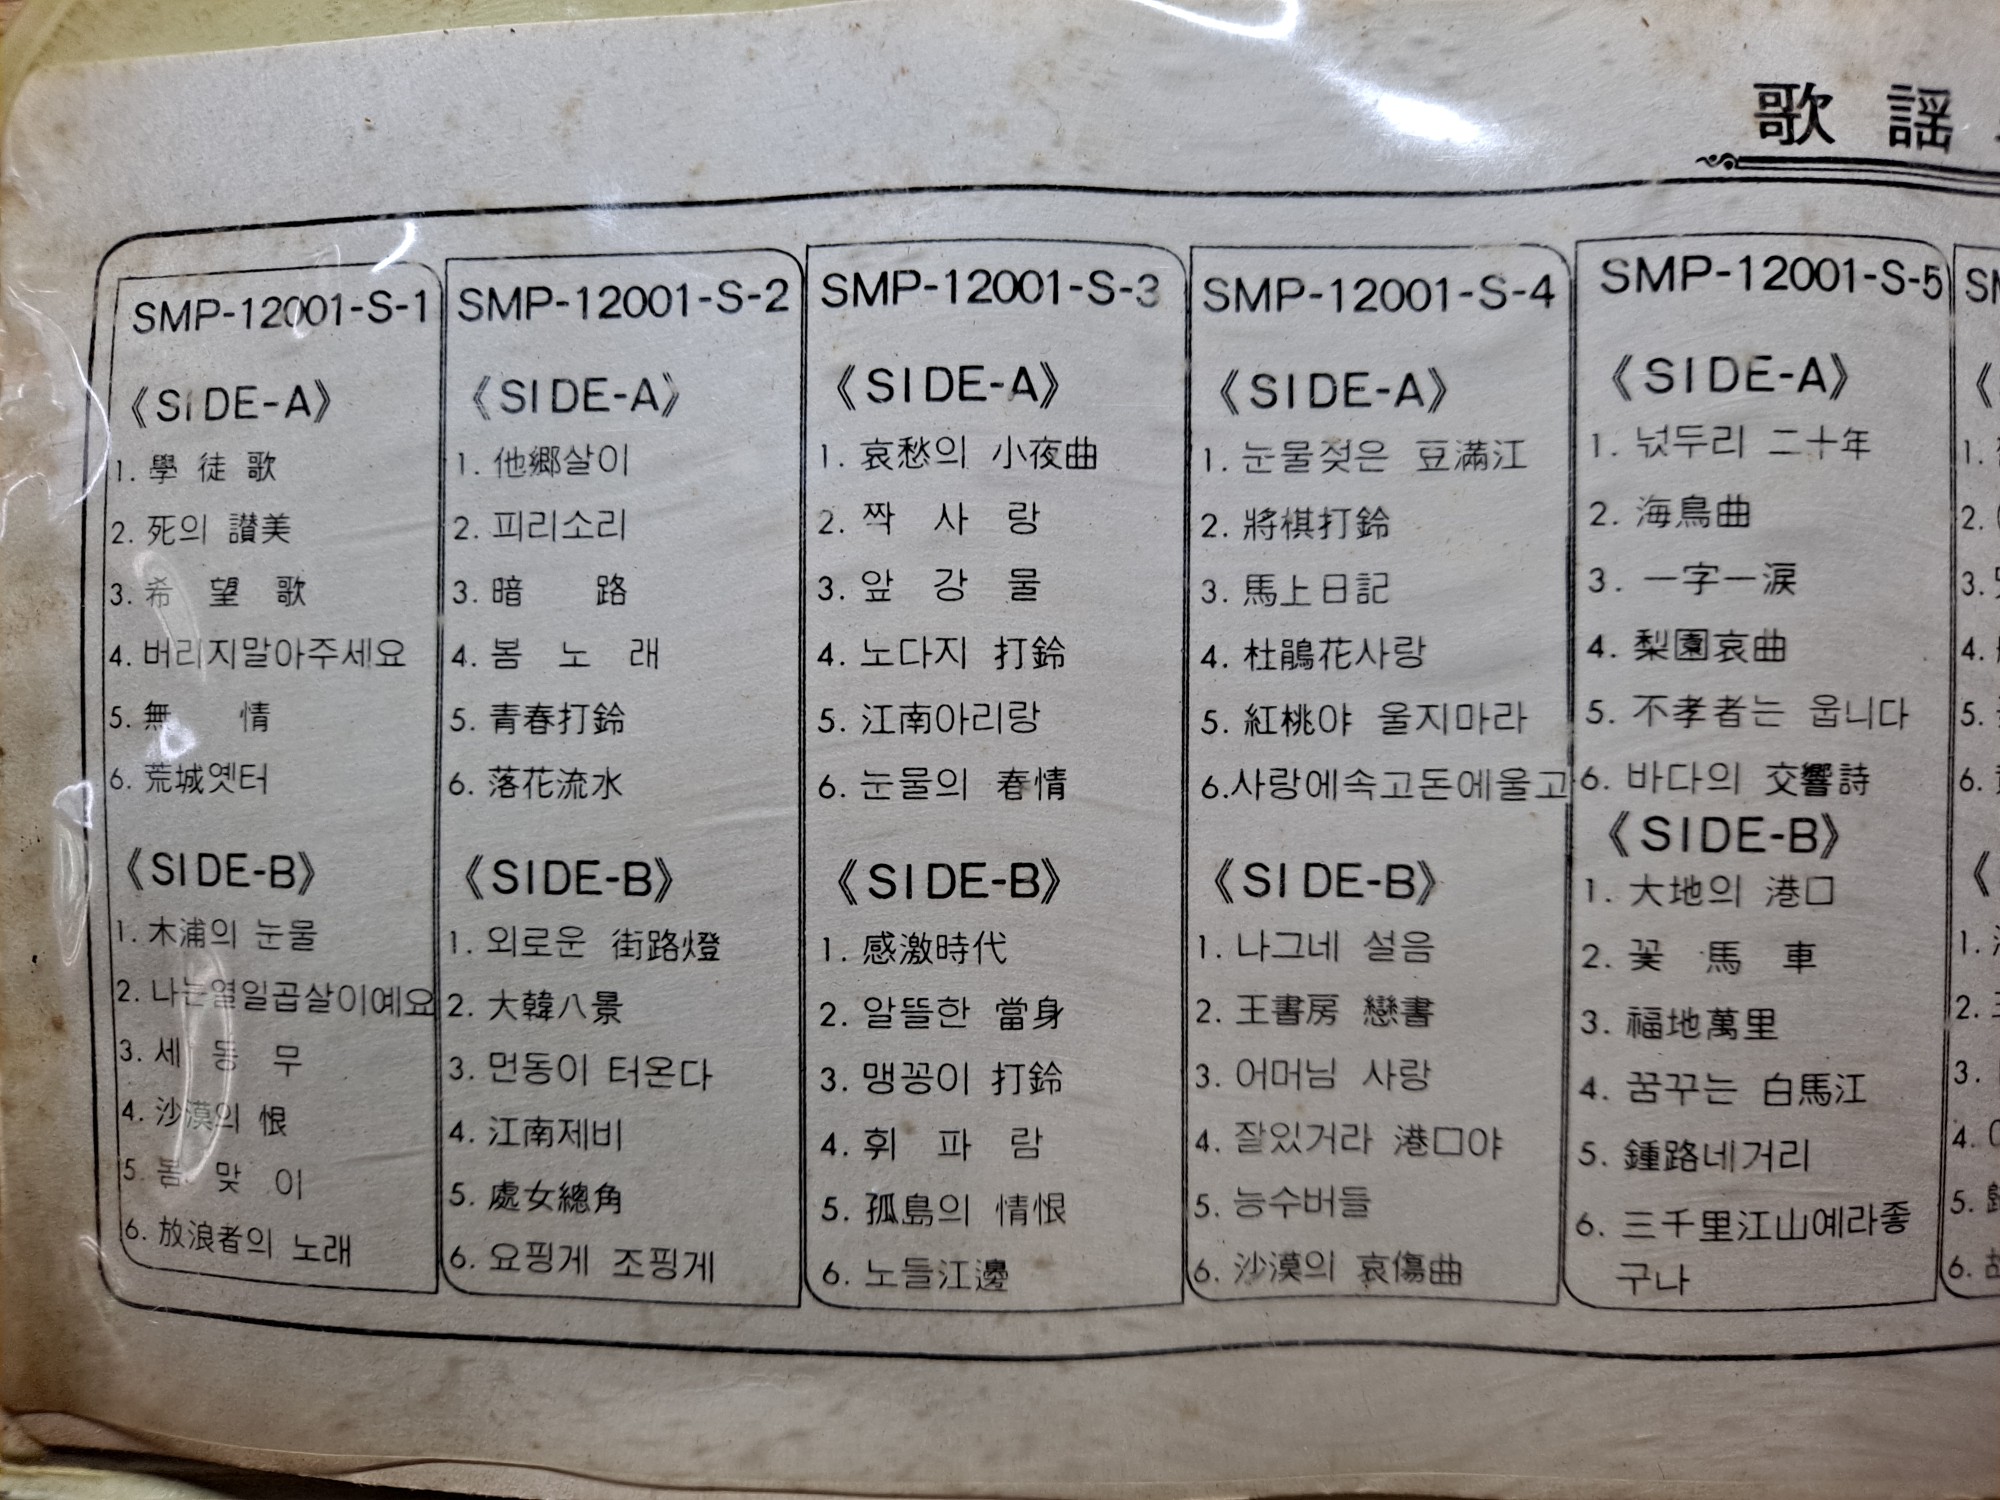 歌 謡
SMP-12001-S-1
《SIDE-A》
1. 學 徒 歌
2. 死의 讃美
3. 希 望 歌
4. 버리지말아주세요
5. 無 情
6. 荒城옛터
《SIDE-B》
1. 木浦의 눈물
2. 나는열일곱살이예요
3. 세 동 무
4. 沙漠의 恨
5. 봄 맞 이
6. 放浪者의 노래
SMP-12001-S-2
《SIDE-A》
1. 他鄕살이
2. 피리소리
3. 暗 路
4. 봄 노 래
5. 青春打鈴
6. 落花流水
《SIDE-B》
1. 외로운 街路燈
2. 大韓八景
3. 먼동이 터온다
4. 江南제비
5. 處女總角
6. 요핑게 조핑게
SMP-12001-S-3
《SIDE-A》
1. 哀愁의 小夜曲
2. 짝 사 랑
3. 앞 강 물
4. 노다지 打鈴
5. 江南아리랑
6. 눈물의 春情
《SIDE-B》
1. 感激時代
2. 알뜰한 當身
3. 맹꽁이 打鈴
4. 휘 파 람
5. 孤島의 情恨
6. 노들江邊
SMP-12001-S-4
《SIDE-A》
1. 눈물젖은 豆滿江
2. 將棋打鈴
3. 馬上日記
4. 杜鵑花사랑
5. 紅桃야 울지마라
6.사랑에속고돈에울고
《SIDE-B》
1. 나그네 설음
2. 王書房 戀書
3. 어머님 사랑
4. 잘있거라 港口야
5. 능수버들
6. 沙漠의 哀傷曲
SMP-12001-S-5
《SIDE-A》
1. 넋두리 二十年
2. 海鳥曲
3. 一字一淚
4. 梨園哀曲
5. 不孝者는 웁니다
6. 바다의 交響詩
《SIDE-B》
1. 大地의 港口
2. 꽃 馬 車
3. 福地萬里
4. 꿈꾸는 白馬江
5. 鍾路네거리
6. 三千里江山에라좋
구나